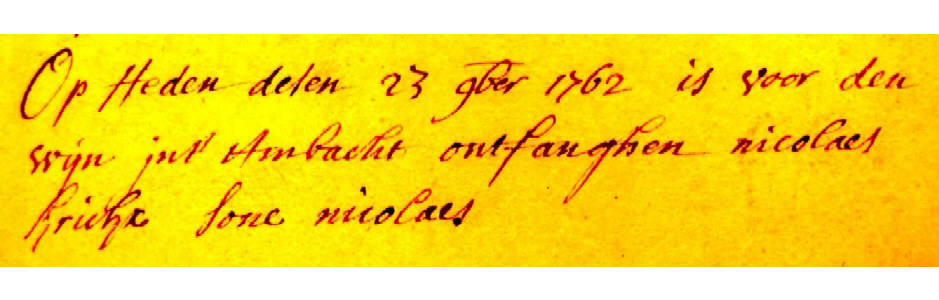 Op Heden desen 23 9ber 1762 is voor den
wijn int Ambacht ontfanghen nicolaes
sone nicolaes